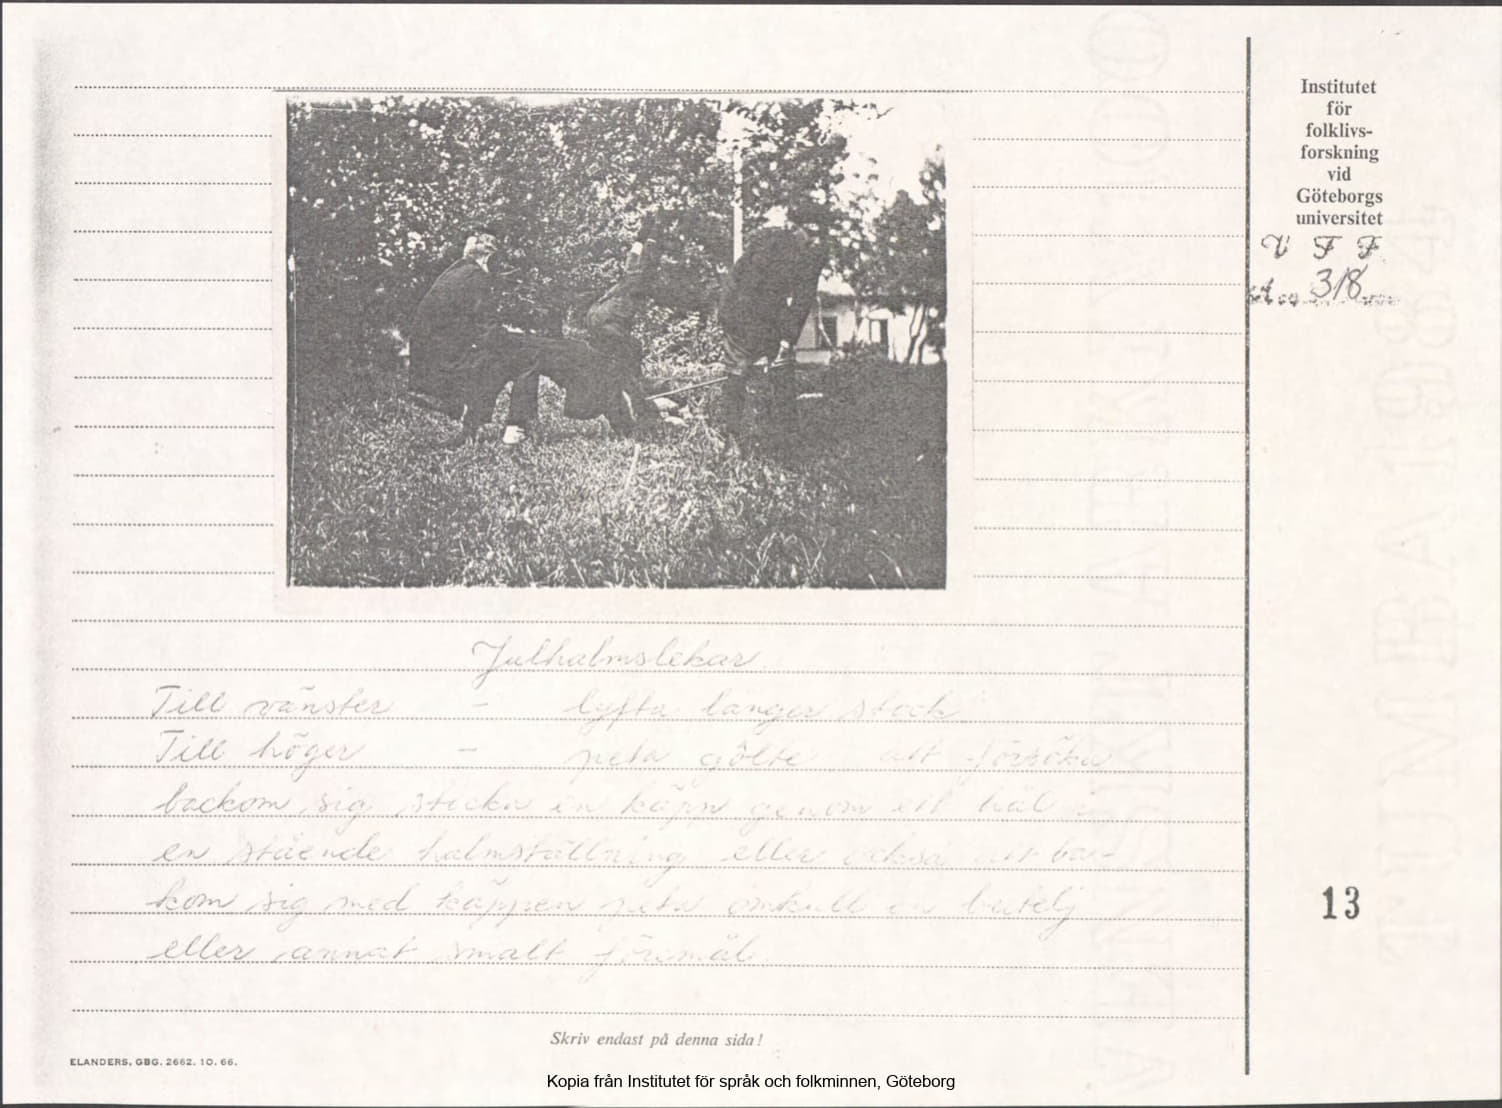 Institutet
för
folklivs-
forskning
vid
Göteborgs
universitet
V F F
318
Julhalmslekar
Till vänster - lyfta långer stock
Till höger - peta gölte att försöka
backom sig sticka en käpp genom ett hål i
en stående halmställning eller också att ba-
kom sig med käppen peta omkull en butelj
eller annat smalt föremål.
13
Skriv endast på denna sida!
ELANDERS, GBG. 2662. 10. 66.
Kopia från Institutet för språk och folkminnen, Göteborg